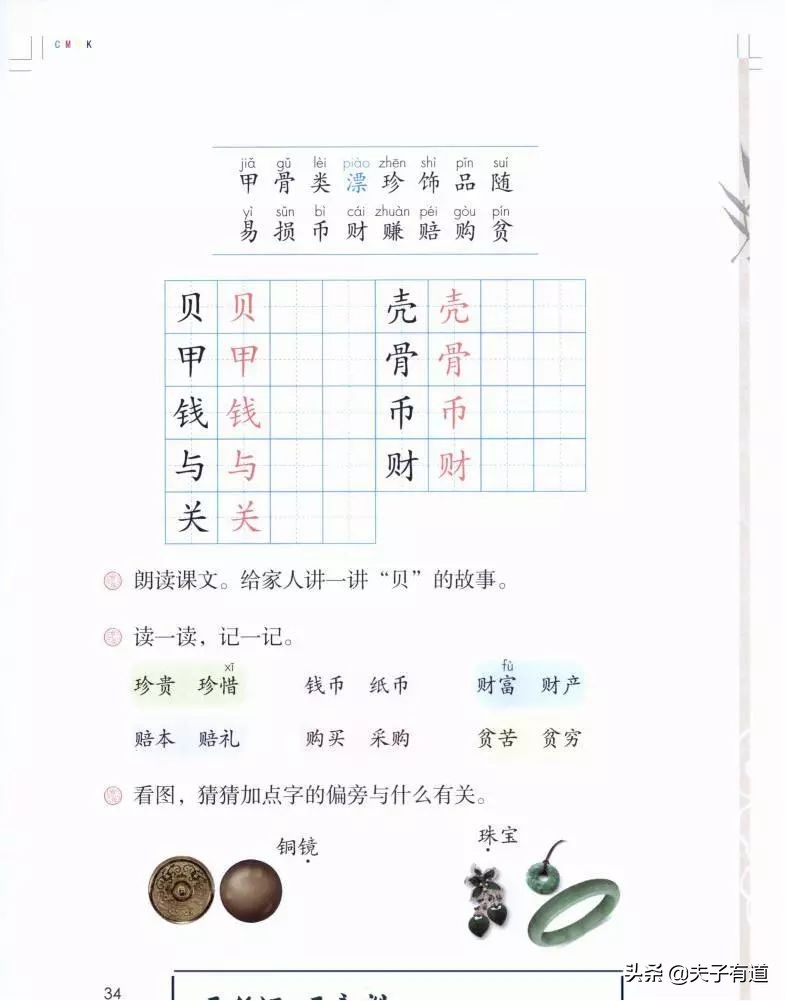 C M K
jiǎ gǔ lèi piào zhēn shì pǐn suí
甲 骨 类 漂 珍 饰 品 随
yì sǔn bì cái zhuàn péi gòu pín
易 损 币 财 赚 赔 购 贫
贝 贝 壳 壳
甲 甲 骨 骨
钱 钱 币 币
与 与 财 财
关 关
朗读课文。给家人讲一讲“贝”的故事。
读一读，记一记。
xī fù
珍贵 珍惜 钱币 纸币 财富 财产
赔本 赔礼 购买 采购 贫苦 贫穷
看图，猜猜加点字的偏旁与什么有关。
铜镜 珠宝
34
头条 @夫子有道